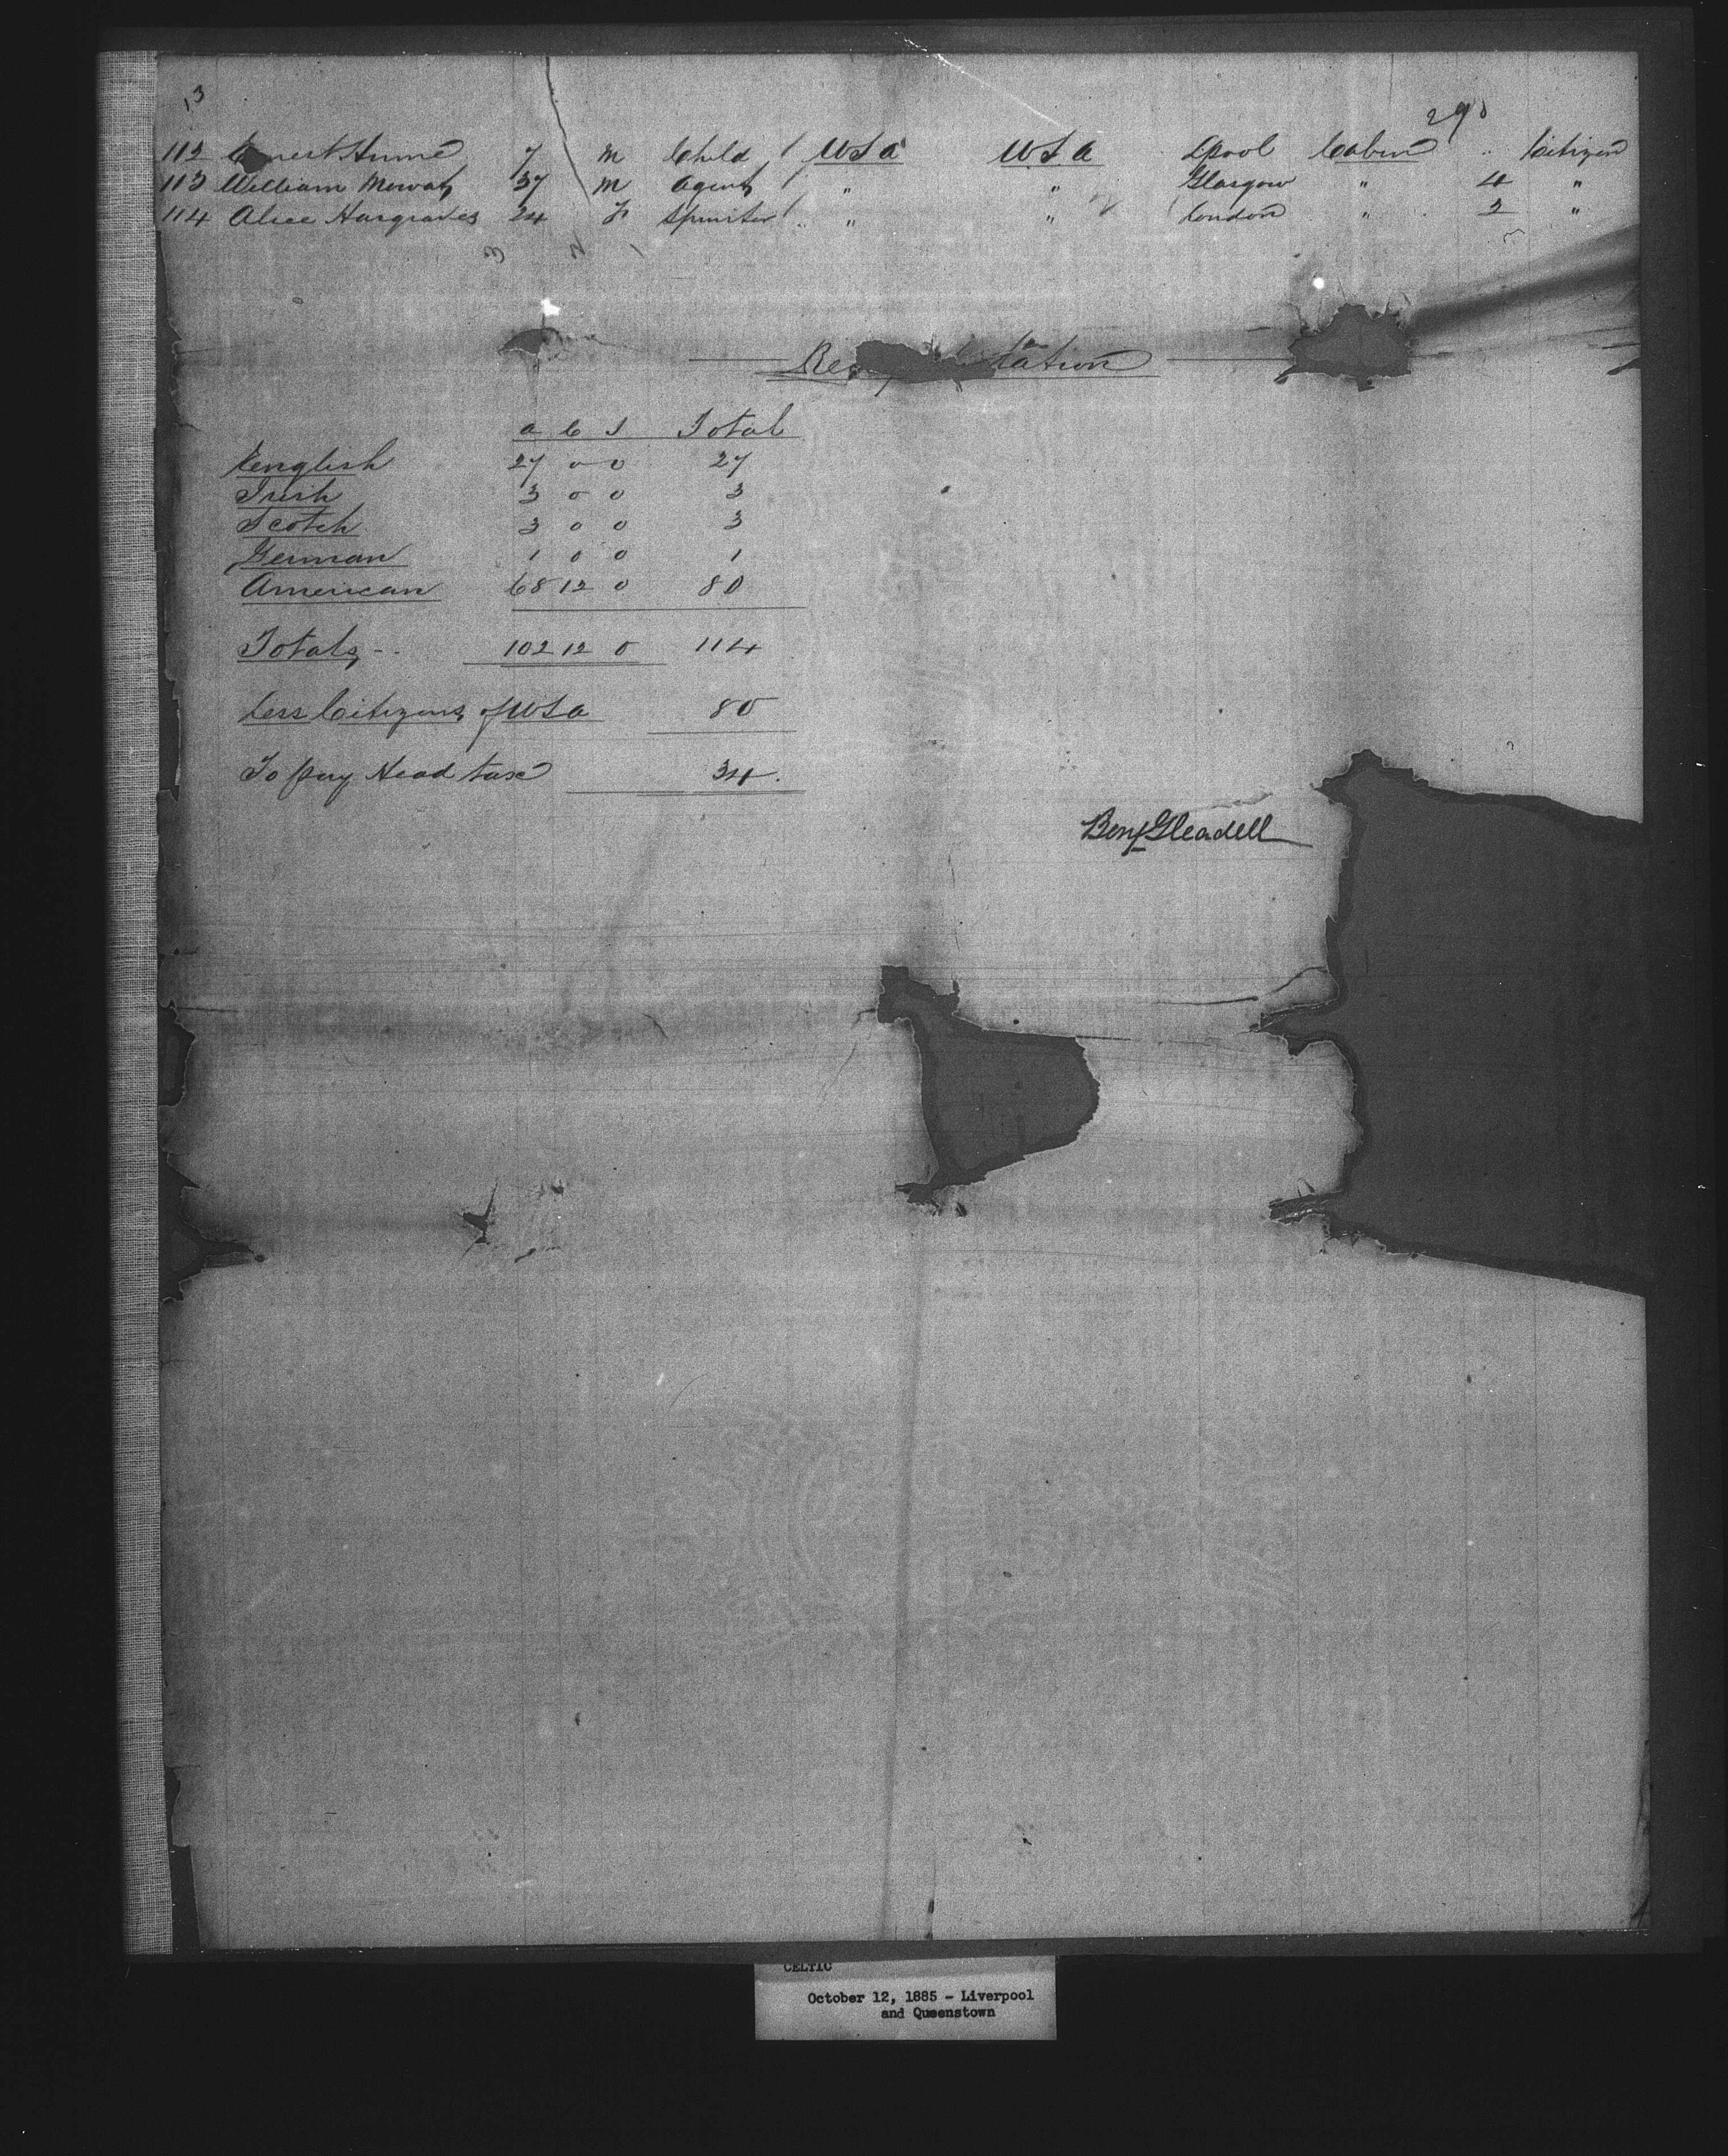 13
290
112 Ernest Hume 7 M Child / USA USA Lpool Cabin " Citizen
113 William Mowat 37 M Agent / " " Glasgow " 4 "
114 Alice Hargraves 24 F Spinster / " " London " 2 "
3 2 1 3
Re tation
a C I Total
English 27 0 0 27
Irish 3 0 0 3
Scotch 3 0 0 3
German 1 0 0 1
American 68 12 0 80
Totals 102 12 0 114
Less Citizens of USA 80
To pay Head tax 34
Benj Gleadell
CELTIC
October 12, 1885 - Liverpool
and Queenstown